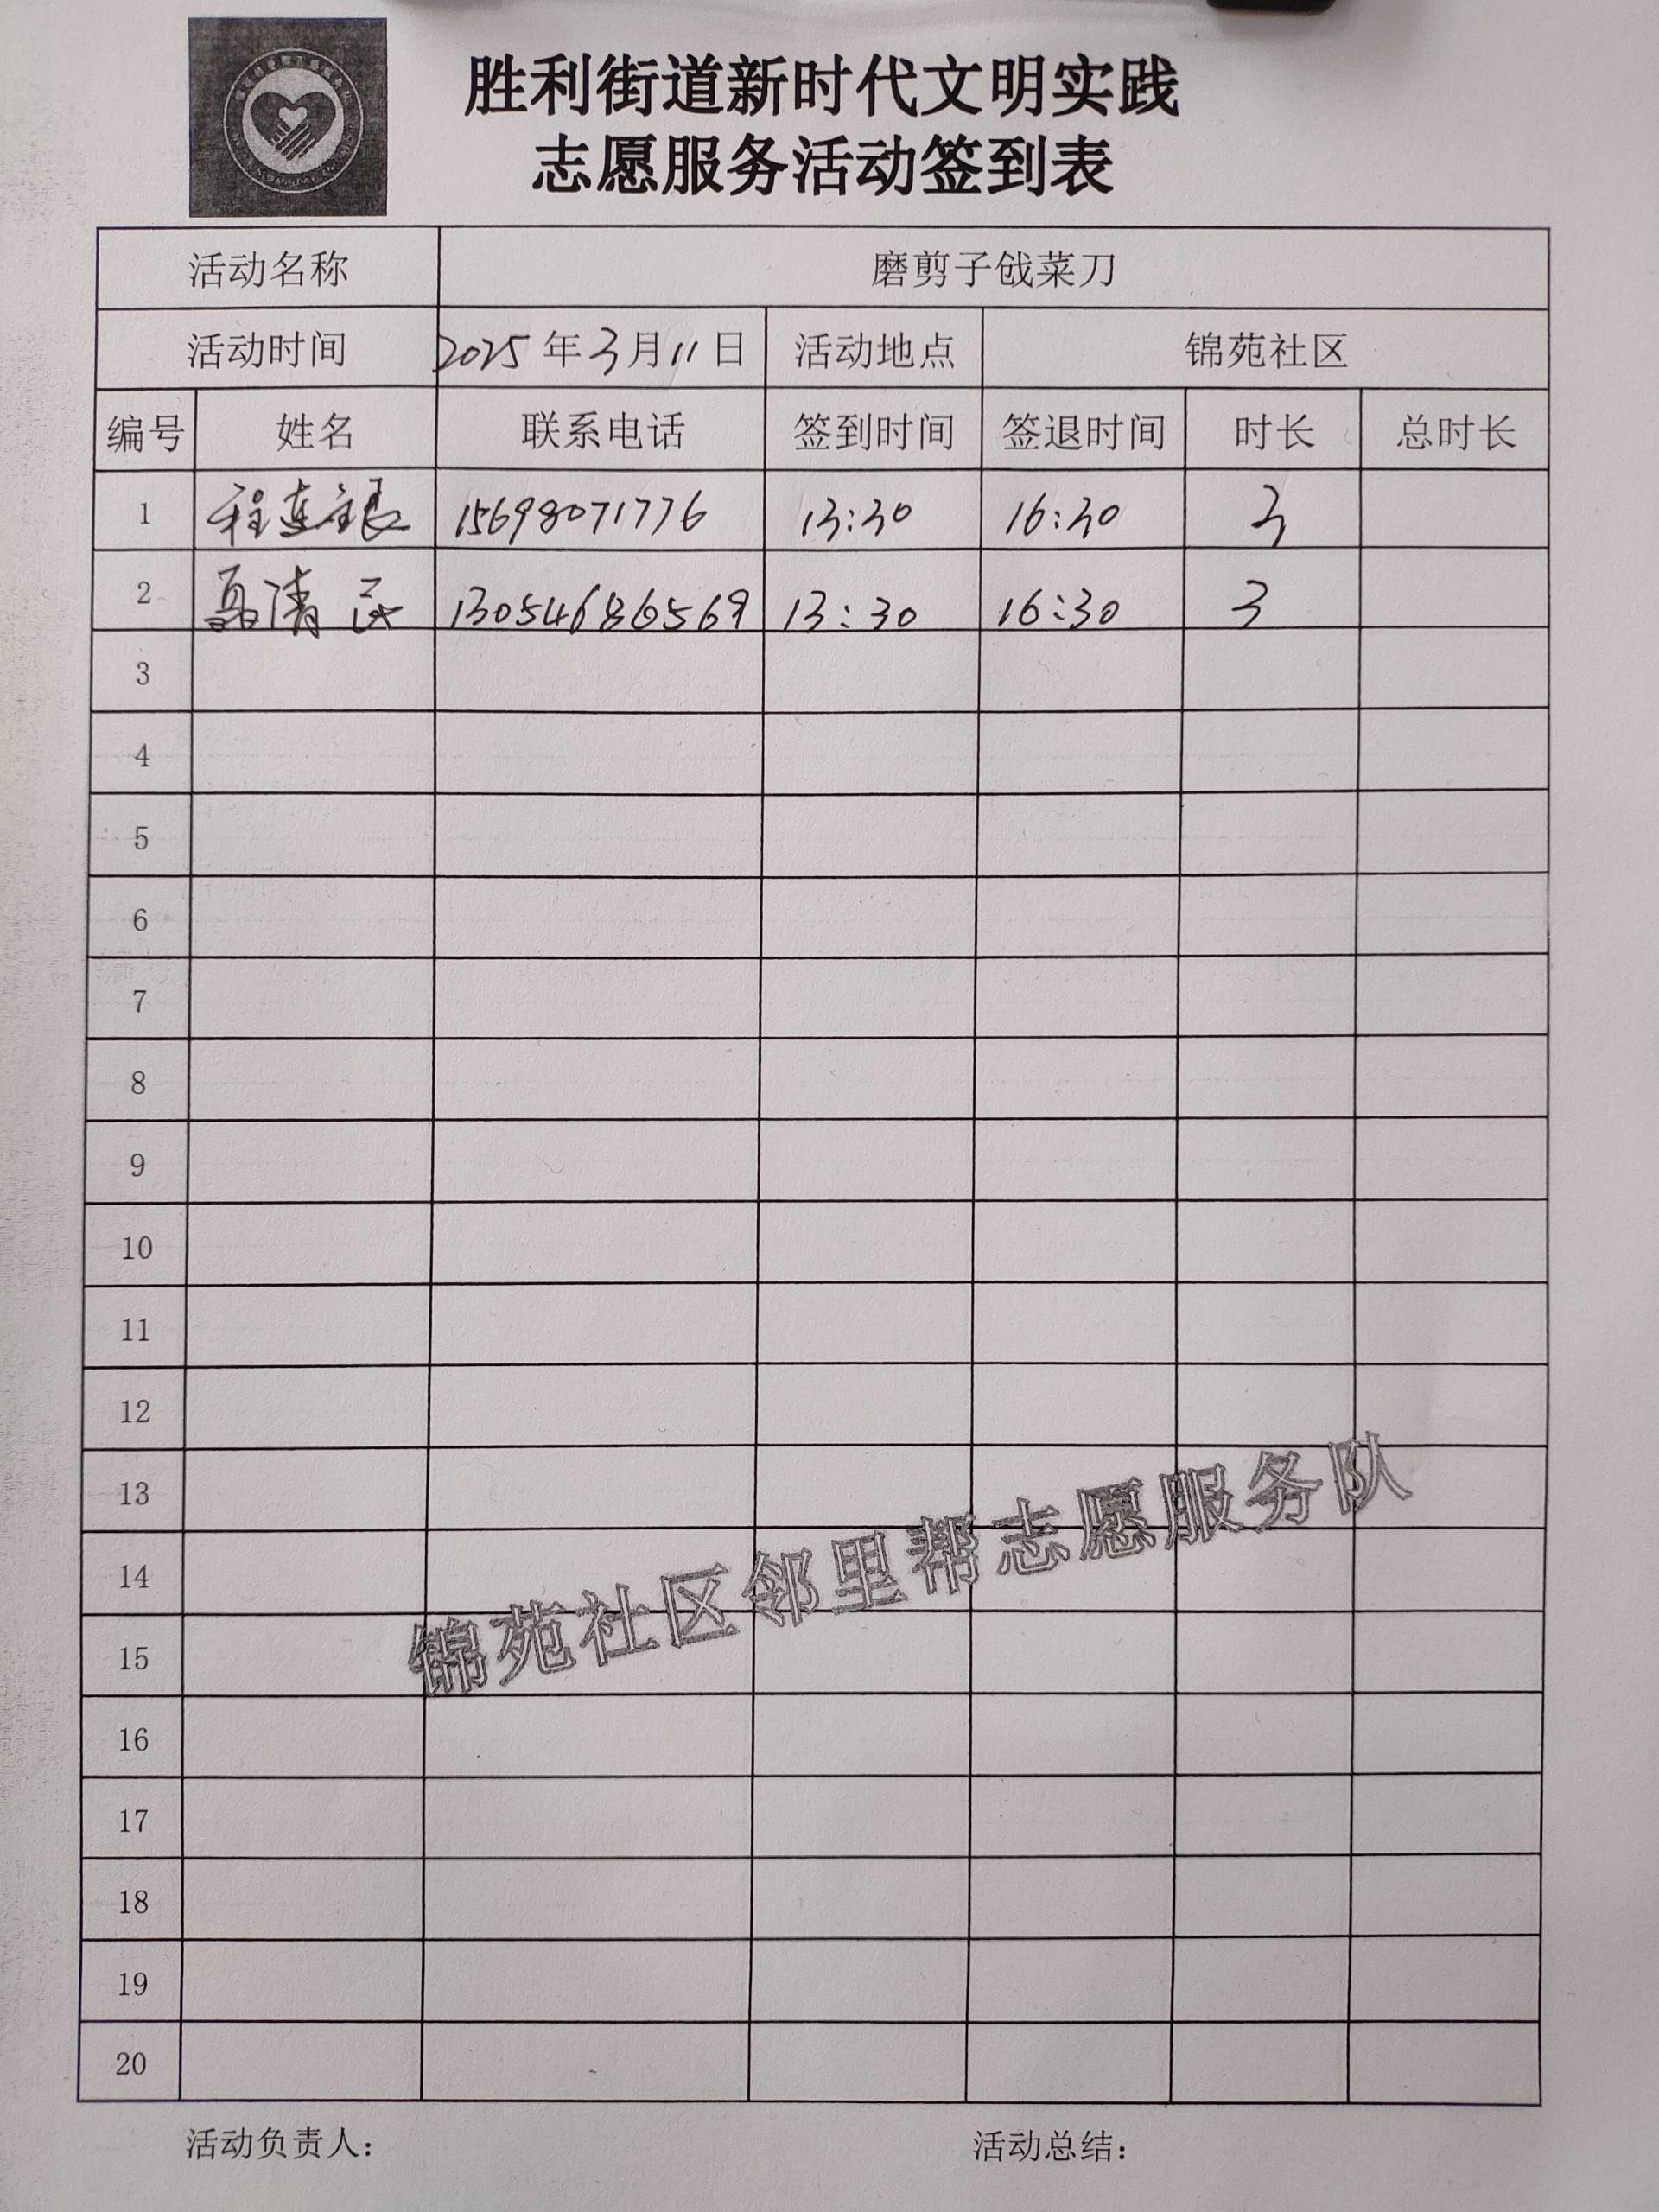 胜利街道新时代文明实践
志愿服务活动签到表
活动名称 磨剪子戗菜刀
活动时间 2025年3月11日 活动地点 锦苑社区
编号 姓名 联系电话 签到时间 签退时间 时长 总时长
1 程连银 15698071776 13:30 16:30 3
2 聂清民 13054686569 13:30 16:30 3
3
4
5
6
7
8
9
10
11
12
13
14
15
16
17
18
19
20
锦苑社区邻里帮志愿服务队
活动负责人： 活动总结：